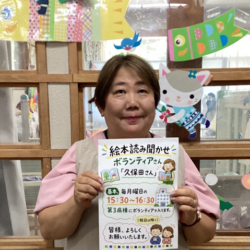 絵本読み聞かせ
ボランティアさん
「久保田さん」
基本 毎月曜日の
15:30～16:30
第3病棟にボランティアに入ります。
皆様、よろしく
お願いいたします。